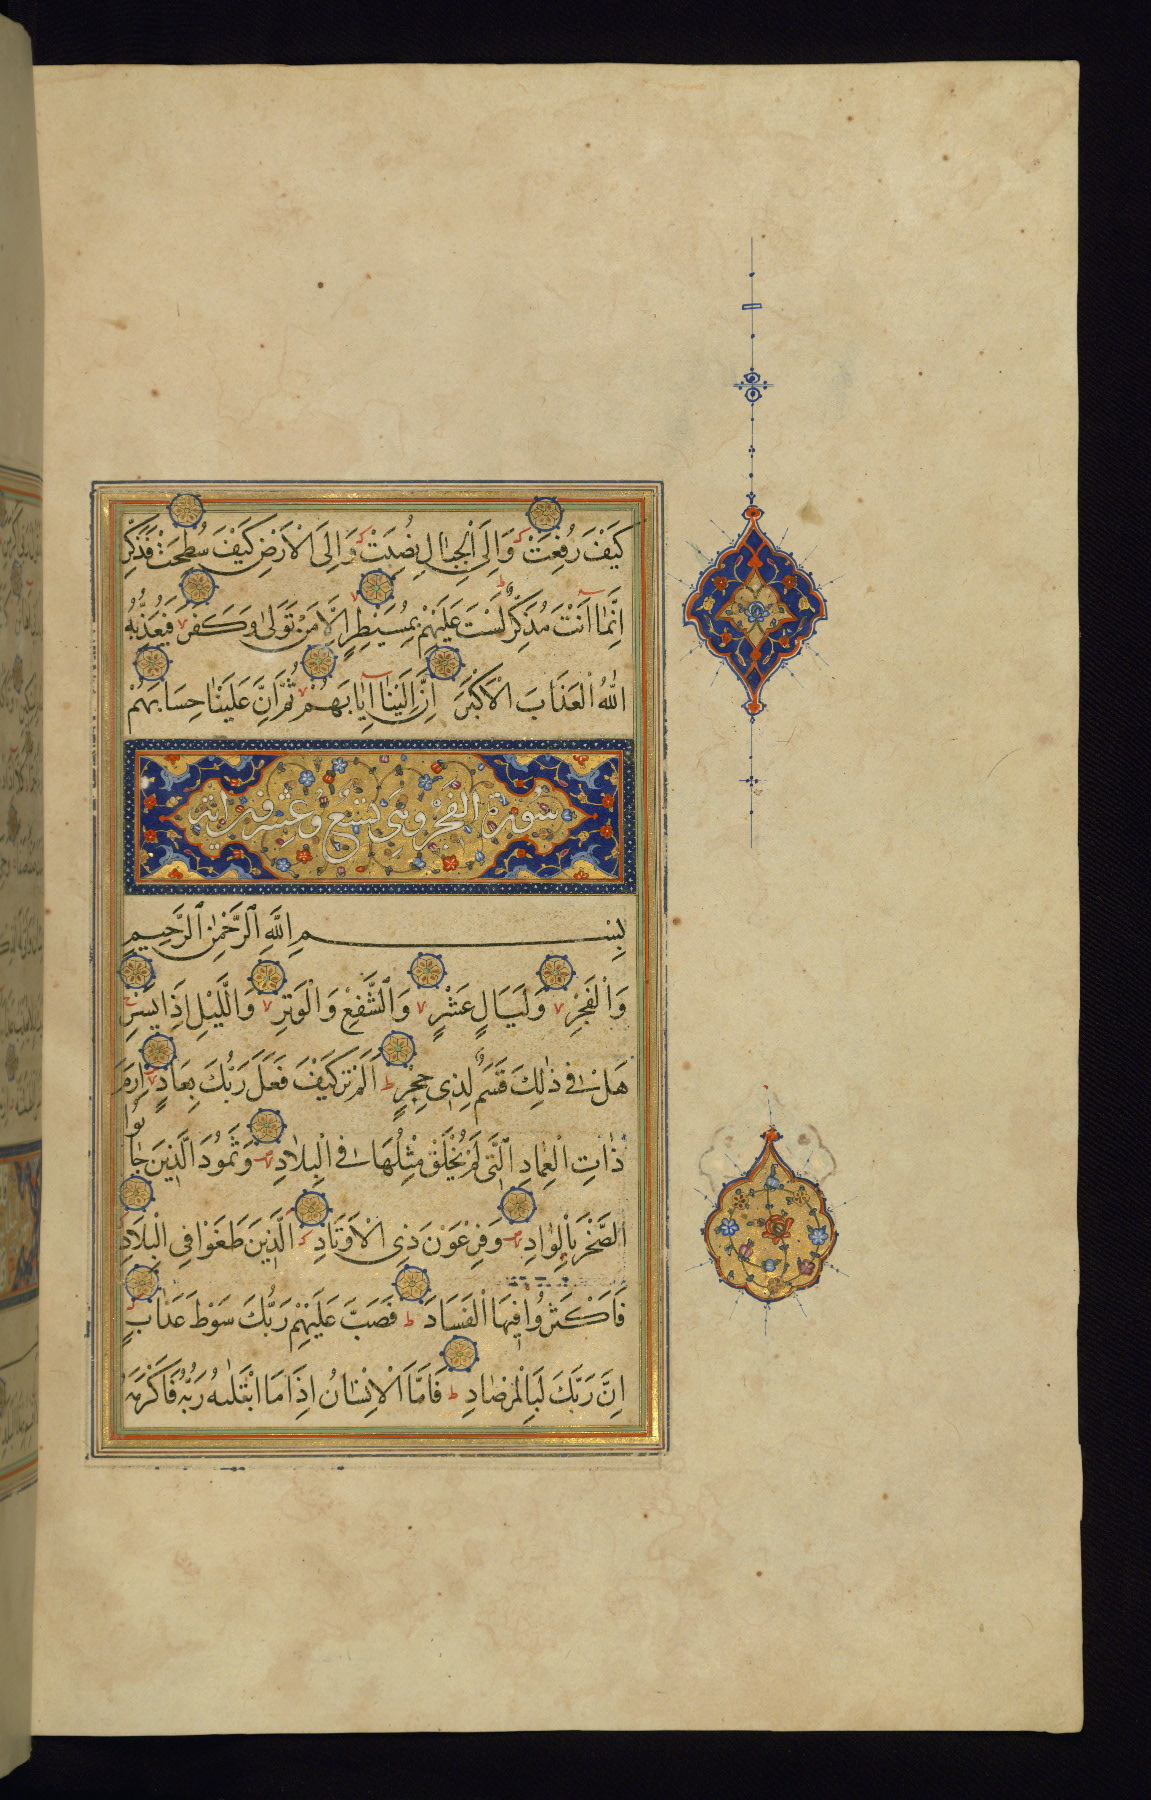 كَيْفَ رُفِعَتْ وَاِلَى الْجِبَالِ كَيْفَ نُصِبَتْ وَاِلَى الْاَرْضِ كَيْفَ سُطِحَتْ فَذَكِّرْ
اِنَّمَا اَنْتَ مُذَكِّرٌ لَسْتَ عَلَيْهِمْ بِمُصَيْطِرٍ اِلَّا مَنْ تَوَلّٰى وَكَفَرَ فَيُعَذِّبُهُ
اللهُ الْعَذَابَ الْاَكْبَرَ اِنَّ اِلَيْنَا اِيَابَهُمْ ثُمَّ اِنَّ عَلَيْنَا حِسَابَهُمْ
سُورَةُ الْفَجْرِ وَهِيَ تِسْعٌ وَعِشْرُونَ اٰيَة
بِسْمِ اللَّهِ الرَّحْمٰنِ الرَّحِيمِ
وَالْفَجْرِ وَلَيَالٍ عَشْرٍ وَالشَّفْعِ وَالْوَتْرِ وَالَّيْلِ اِذَا يَسْرِ
هَلْ فِي ذٰلِكَ قَسَمٌ لِذِي حِجْرٍ اَلَمْ تَرَ كَيْفَ فَعَلَ رَبُّكَ بِعَادٍ اِرَمَ
ذَاتِ الْعِمَادِ الَّتِي لَمْ يُخْلَقْ مِثْلُهَا فِي الْبِلَادِ وَثَمُودَ الَّذِينَ جَابُوا
الصَّخْرَ بِالْوَادِ وَفِرْعَوْنَ ذِي الْاَوْتَادِ الَّذِينَ طَغَوْا فِي الْبِلَادِ
فَاَكْثَرُوا فِيهَا الْفَسَادَ فَصَبَّ عَلَيْهِمْ رَبُّكَ سَوْطَ عَذَابٍ
اِنَّ رَبَّكَ لَبِالْمِرْصَادِ فَاَمَّا الْاِنْسَانُ اِذَا مَا ابْتَلٰيهُ رَبُّهُ فَاَكْرَمَهُ